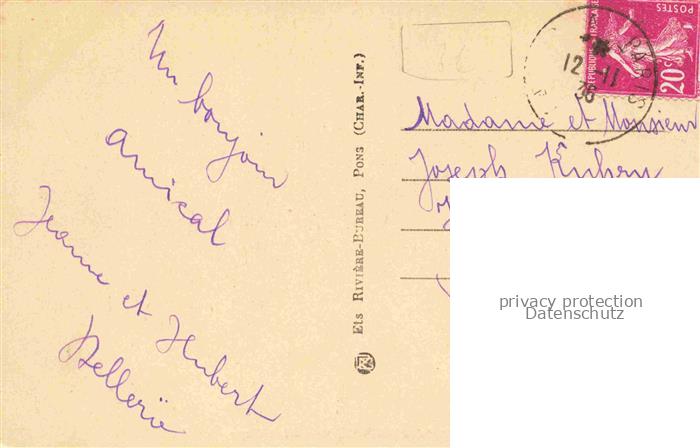 Un bonjour
amical
Jeanne et Hubert
Ets RIVIÈRE-BUREAU, PONS (CHAR.-INF.)
POSTES
REPUBLIQUE FRANÇAISE
20c
PARIS
12-11
36
Madame et Monsieur
Joseph
privacy protection
Datenschutz